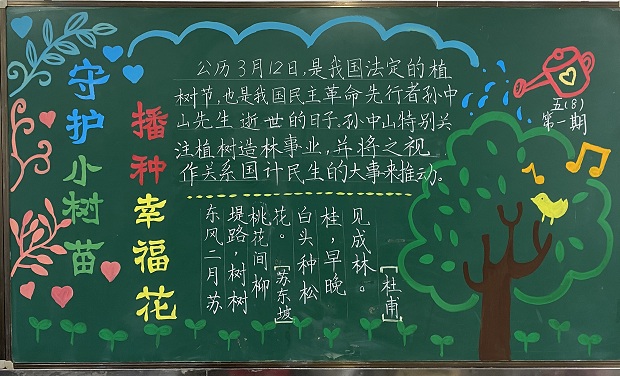 守护小树苗
播种幸福花
公历3月12日,是我国法定的植
树节,也是我国民主革命先行者孙中
山先生逝世的日子.孙中山特别关
注植树造林事业,并将之视
作关系国计民生的大事来推动。
五(8)
第一期
东风二月苏
堤路,树树
桃花间柳
花。
[苏东坡]
白头种松
桂,早晚
见成林。
[杜甫]